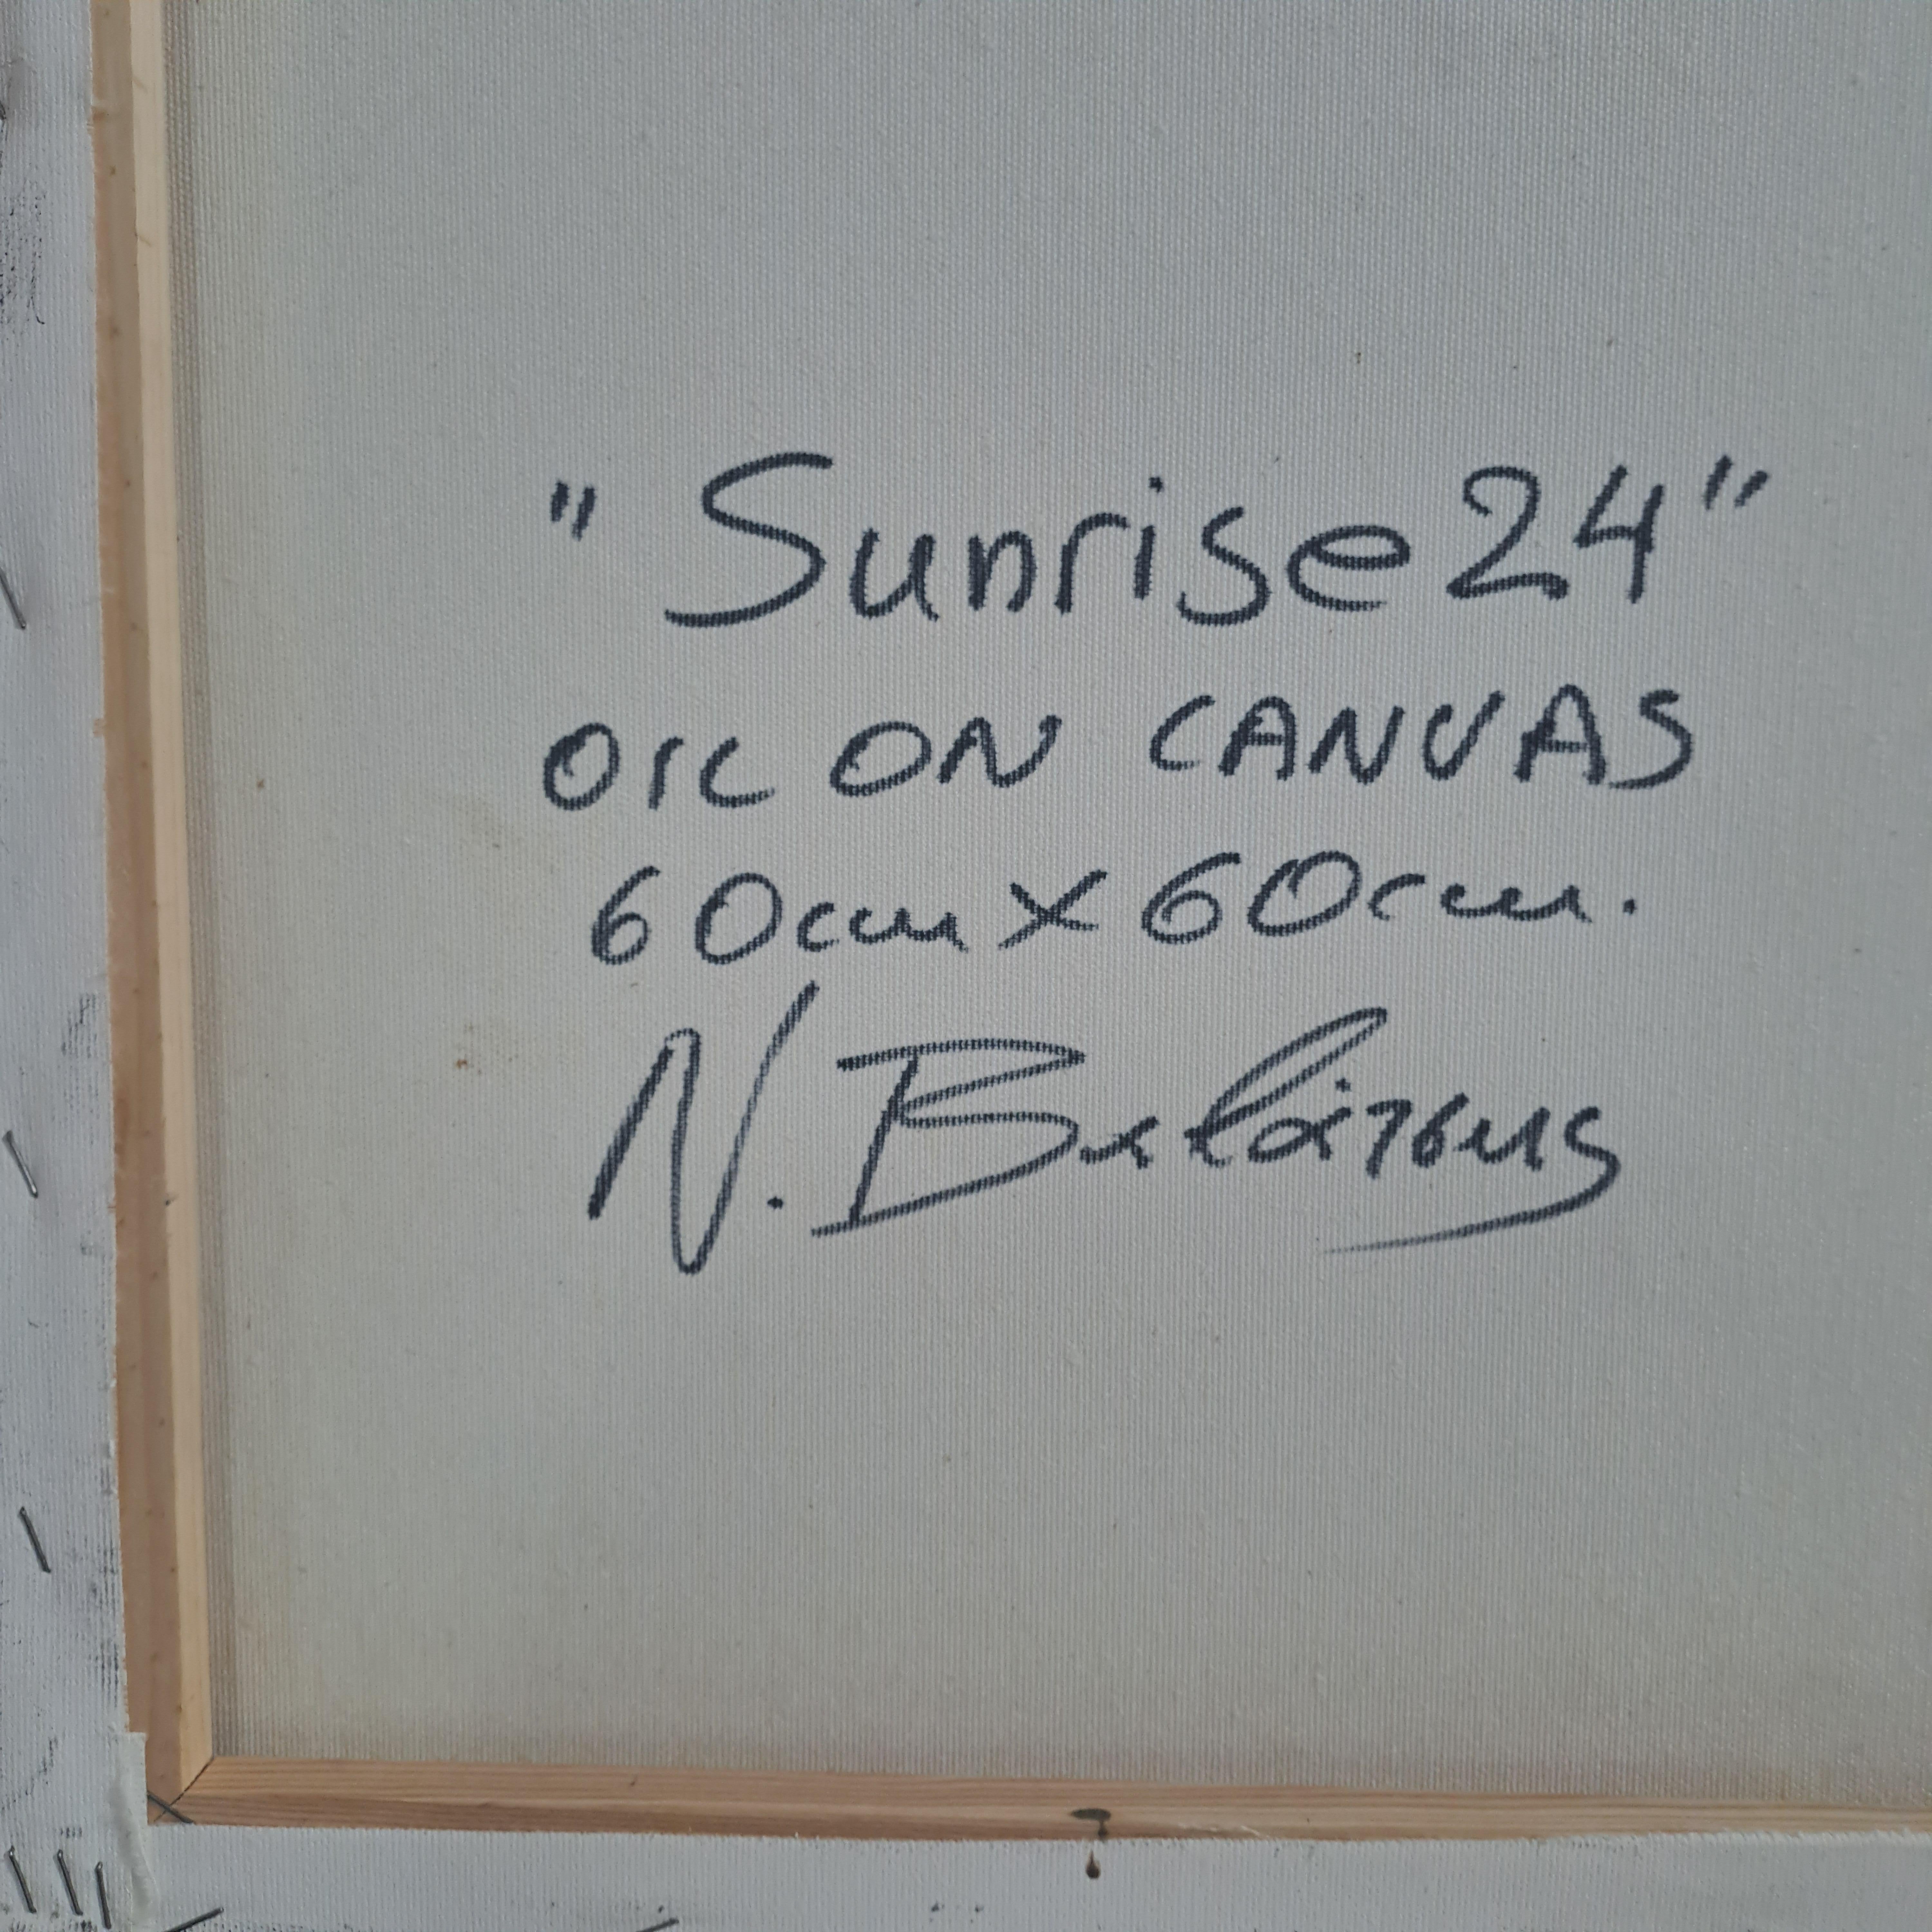 "Sunrise 24"
OIL ON CANVAS
60cm x 60cm.
N.